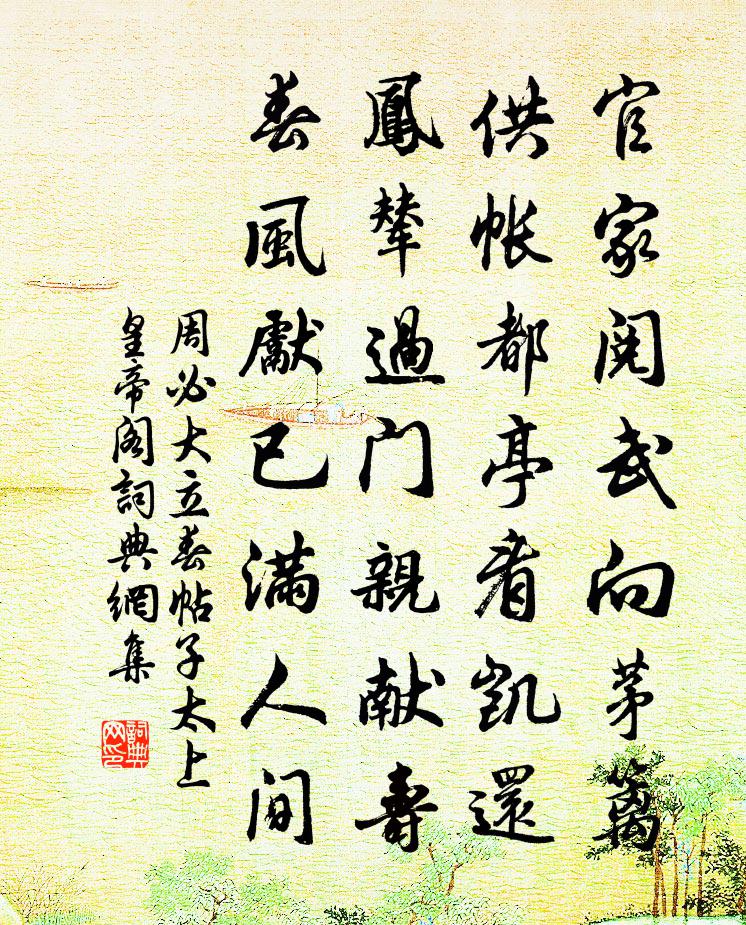 官家閱武向茅篱
供帐都亭看凱還
鳳輦過门親献壽
春風獻已滿人间
周必大立春帖子太上
皇帝阁詞典網集
詞典网印